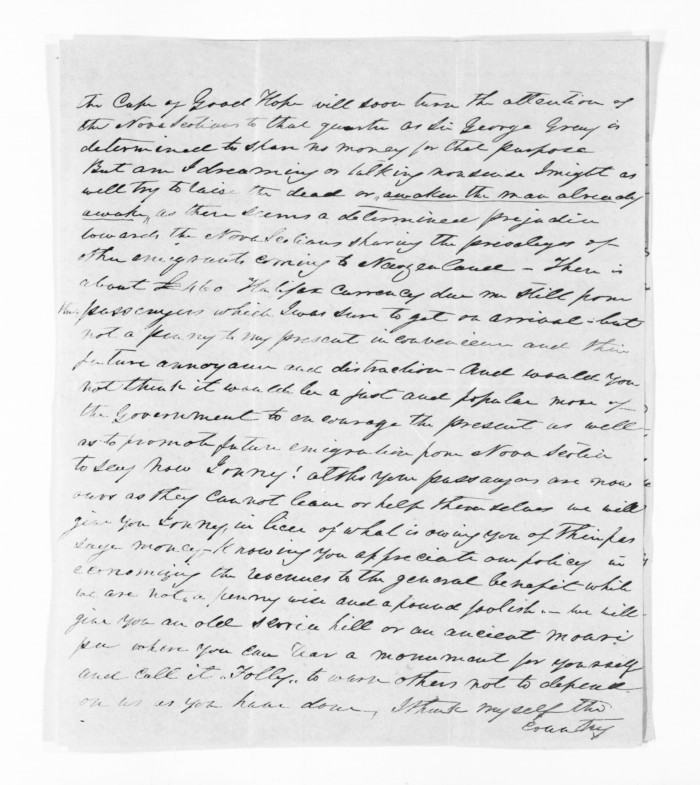 the Cape of Good Hope will soon turn the attention of
the Nova Scotians to that quarter as Sir George Grey is
determined to spare no money for that purpose
But am I dreaming or talking nonsense I might as
well try to raise the dead or "awaken the man already
awake" as there seems a determined prejudice
towards the Nova Scotians sharing the privileges of
other emigrants coming to New Zealand – There is
about £460 Halifax currency due me still from
passengers which I was sure to get on arrival – but
not a penny to my present inconvenience and their
future annoyance and distraction – And would you
not think it would be a just and popular move of
the Government to encourage the present as well
as to promote future emigration from Nova Scotia
to say Now Jonny! as your passengers are now
ours as they cannot leave or help themselves we will
give you Jonny, in lieu of what is owing you of their pas
sage money – Knowing you appreciate our policy in
economizing the revenues to the general benefit while
we are not, a penny wise and a pound foolish – we will
give you an old scoria hill or an ancient mouri
pa where you can rear a monument for yourself
and call it "Folly" to warn others not to depend
on us as you have done, I think myself the
Country